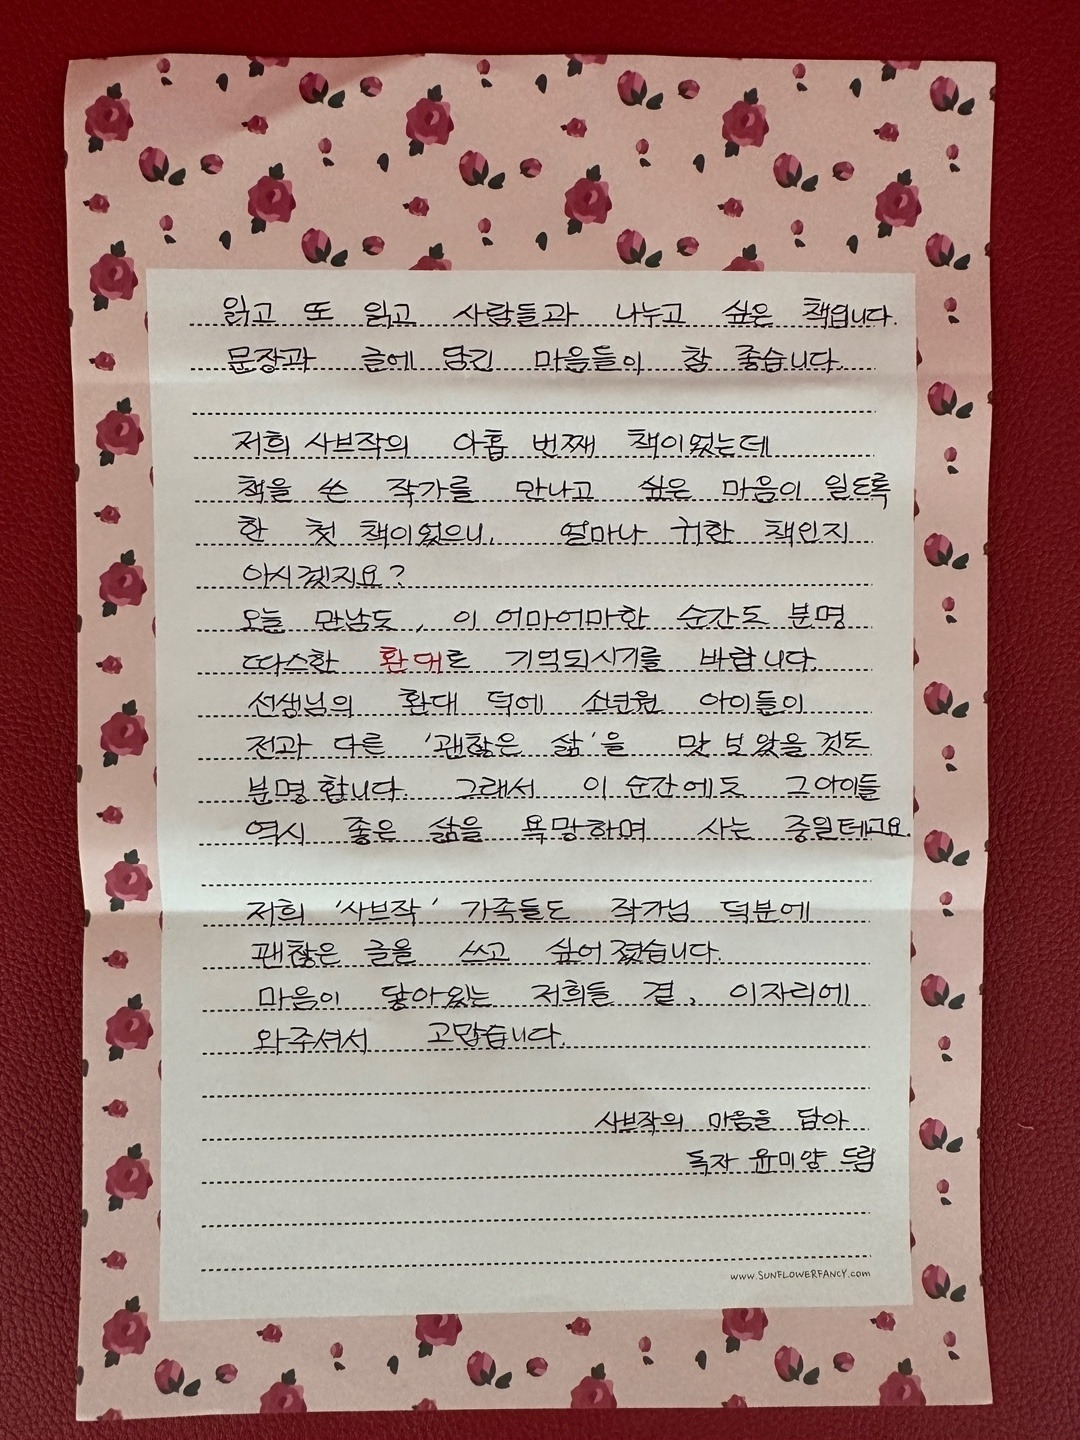 읽고 또 읽고 사람들과 나누고 싶은 책입니다.
문장과 글에 담긴 마음들이 참 좋습니다.
저희 사브작의 아홉 번째 책이었는데
책을 쓴 작가를 만나고 싶은 마음이 일도록
한 첫 책이었으니, 얼마나 귀한 책인지
아시겠지요?
오늘 만남도, 이 어마어마한 순간도 분명
따스한 환대로 기억되시기를 바랍니다.
선생님의 환대 덕에 소년원 아이들이
전과 다른 '괜찮은 삶'을 맛보았을 것도
분명합니다. 그래서 이 순간에도 그 아이들
역시 좋은 삶을 욕망하며 사는 중일테고요.
저희 '사브작' 가족들도 작가님 덕분에
괜찮은 글을 쓰고 싶어졌습니다.
마음이 닿아있는 저희들 곁, 이자리에
와주셔서 고맙습니다.
사브작의 마음을 담아
독자 윤미양 드림
www.SUNFLOWERFANCY.com